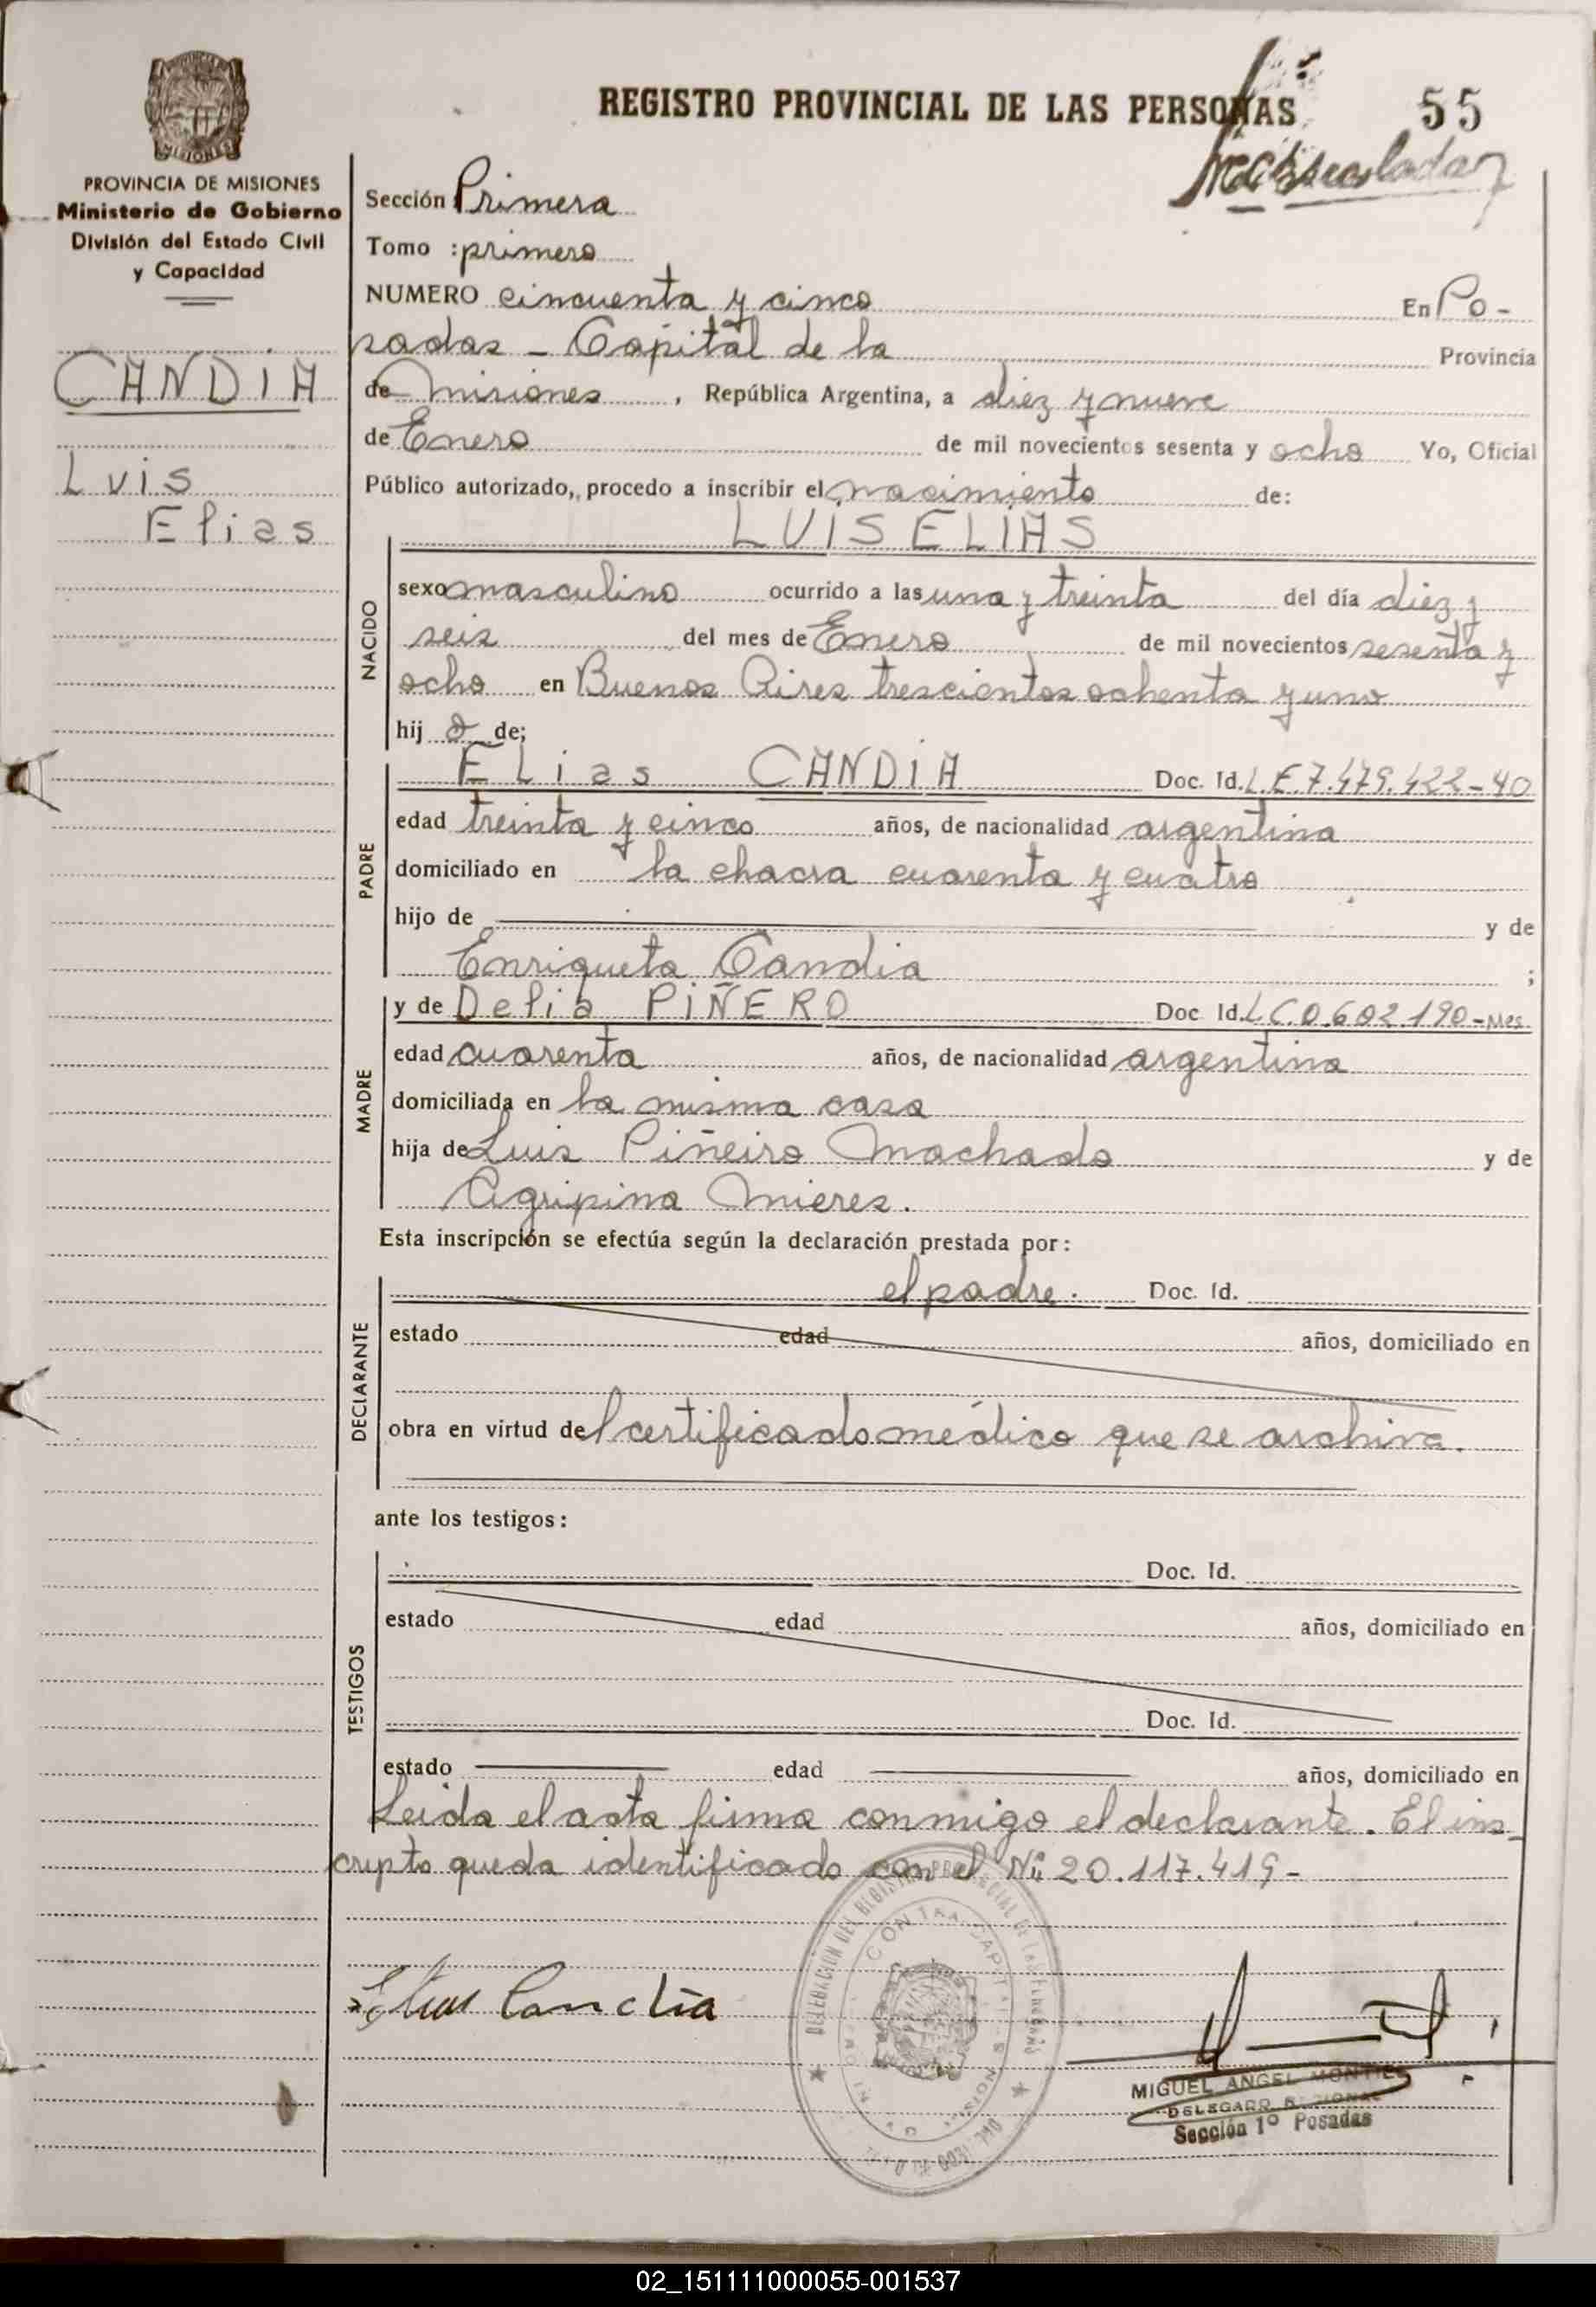 REGISTRO PROVINCIAL DE LAS PERSONAS
55
PROVINCIA DE MISIONES
Ministerio de Gobierno
División del Estado Civil
y Capacidad
CANDIA
Luis
Elias
Sección Primera
Tomo : primero
NUMERO cincuenta y cinco En Po-
sadas - Capital de la Provincia
de Misiones , República Argentina, a diez y nueve
de Enero de mil novecientos sesenta y ocho Yo, Oficial
Público autorizado, procedo a inscribir el nacimiento de:
LUIS ELIAS
NACIDO
sexo masculino ocurrido a las una y treinta del día diez y
seis del mes de Enero de mil novecientos sesenta y
ocho en Buenos Aires trescientos ochenta y uno
hij o de;
PADRE
Elias CANDIA Doc. Id. L.E. 7.479.422-40
edad treinta y cinco años, de nacionalidad argentina
domiciliado en la chacra cuarenta y cuatro
hijo de y de
Enriqueta Candia ;
MADRE
y de Delia PIÑERO Doc Id. L C 0.602.190-Mes
edad cuarenta años, de nacionalidad argentina
domiciliada en la misma casa
hija de Luis Piñeiro Machado y de
Agripina Mieres.
Esta inscripción se efectúa según la declaración prestada por:
DECLARANTE
el padre. Doc. Id.
estado edad años, domiciliado en
obra en virtud del certificado médico que se archiva.
ante los testigos:
TESTIGOS
Doc. Id.
estado edad años, domiciliado en
Doc. Id.
estado edad años, domiciliado en
Leida el acta firma conmigo el declarante. El ins-
cripto queda identificado con el Nº 20.117.419-
Elias Candia
MIGUEL ANGEL MONTIEL
DELEGADO REGIONAL
Sección 1º Posadas
02_151111000055-001537